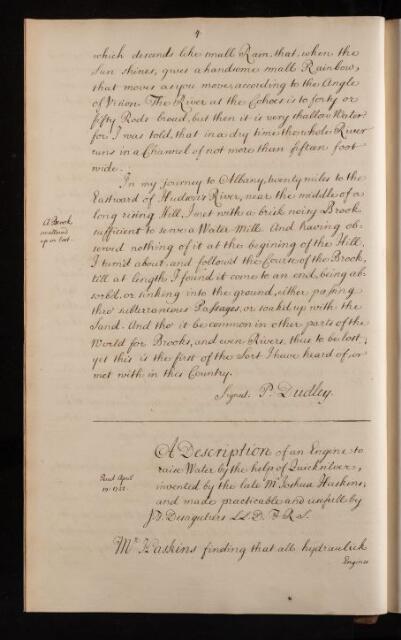 4
which descends like small Rain, that, when the
Sun shines, gives a handsome small Rainbow,
that moves as you move, according to the Angle
of Vision. The River at the Cohoes is to forty or
fifty Rods broad, but then it is very shallow Water
for I was told, that in a dry time the whole River
runs in a Channel of not more than fifteen foot
wide.
In my journey to Albany, twenty miles to the
Eastward of Hudson's River, near the middle of a
long rising Hill, I met with a brisk noisy Brook
sufficient to serve a Water-Mill. And having ob-
served nothing of it at the begining of the Hill,
I turn'd about, and follow'd the Course of the Brook,
till at length I found it come to an end, being ab-
sorb'd, or sinking into the ground, either passing
thro' subterraneous Passages, or soaked up with the
Sand. And tho' it be common in other parts of the
World for Brooks, and even Rivers, thus to be lost;
yet this is the first of the Sort I have heard of, or
met with in this Country.
Signed: P. Dudley.
A Brook
swallowed
up or lost.
A Description of an Engine to
raise Water by the help of Quicksilver,
invented by the late Mr. Joshua Haskins,
and made practicable and usefull by
J. T. Desaguliers LL. D. F. R. S.
Read April
1722.
Mr. Haskins finding that all hydraulick
Engines